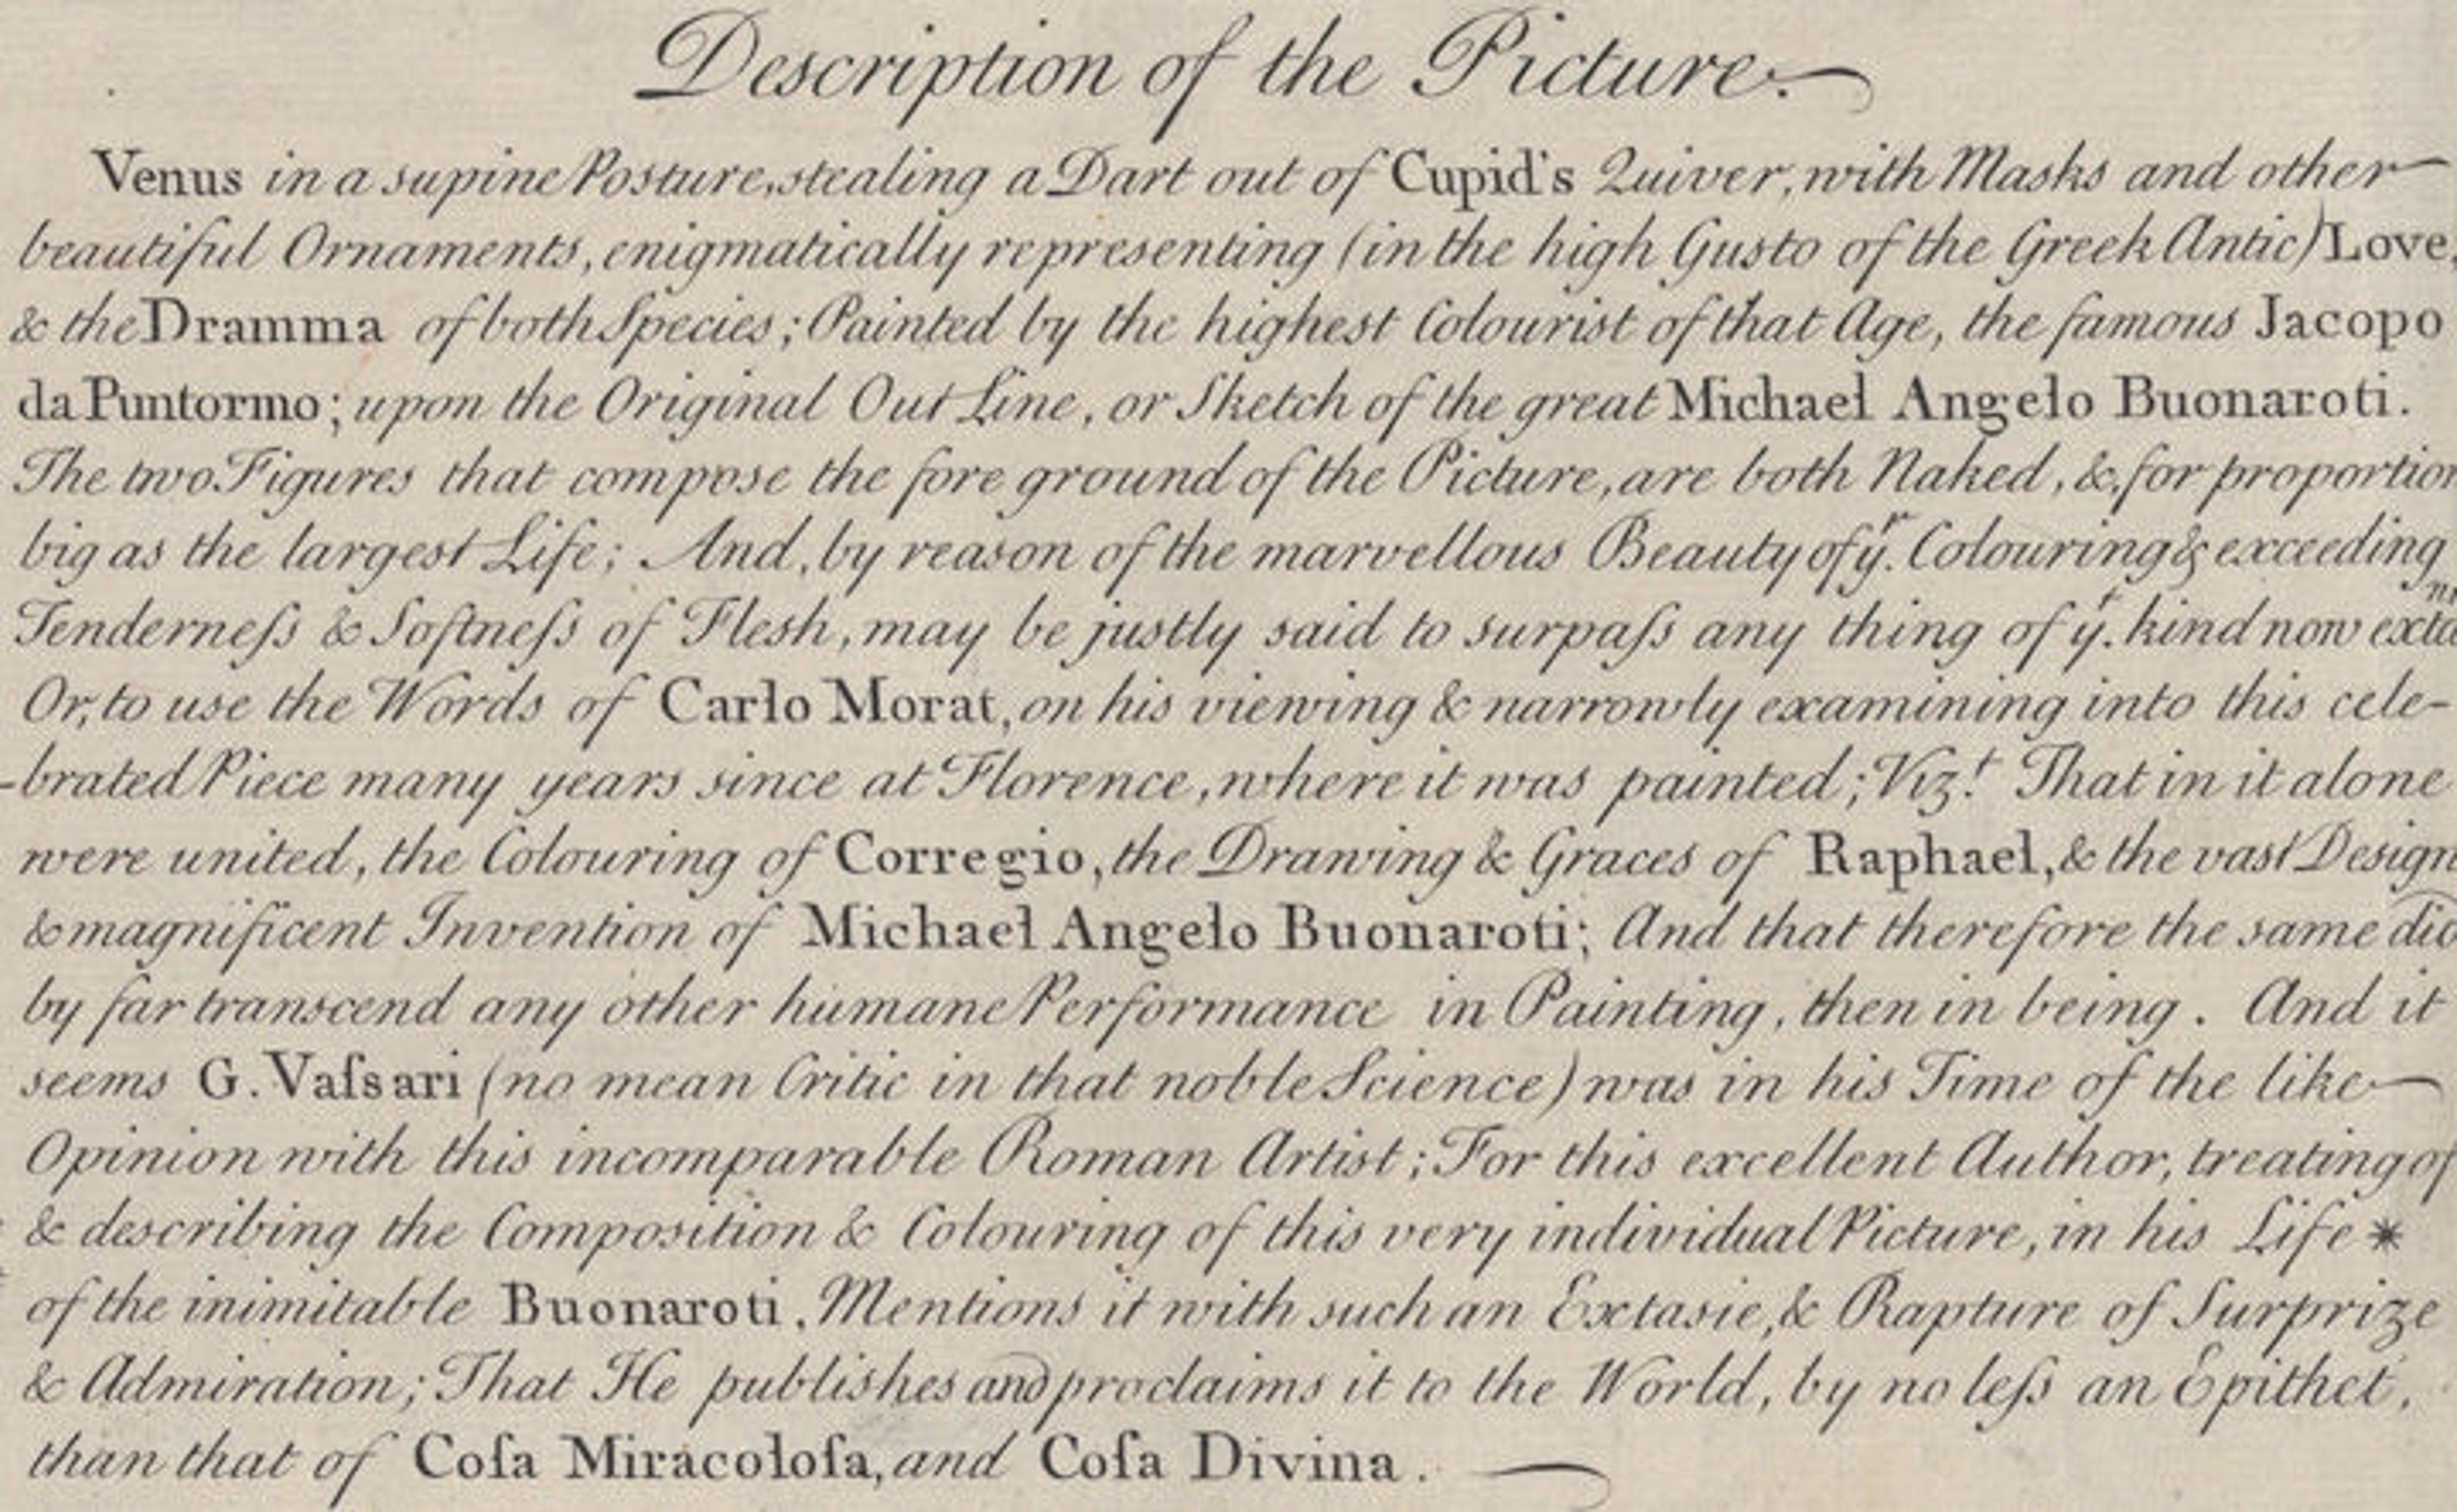 Description of the Picture.
Venus in a supine Posture, stealing a Dart out of Cupid's Quiver, with Masks and other
beautiful Ornaments, enigmatically representing (in the high Gusto of the Greek Antic) Love,
& the Dramma of both Species; Painted by the highest Colourist of that Age, the famous Jacopo
da Puntormo; upon the Original Out Line, or Sketch of the great Michael Angelo Buonaroti.
The two Figures that compose the fore ground of the Picture, are both Naked, & for proportion
big as the largest Life; And, by reason of the marvellous Beauty of yr. Colouring & exceeding
Tenderneſs & Softneſs of Flesh, may be justly said to surpaſs any thing of yt. kind now extant
Or, to use the Words of Carlo Morat, on his viewing & narrowly examining into this cele-
-brated Piece many years since at Florence, where it was painted; Vizt. That in it alone
were united, the Colouring of Corregio, the Drawing & Graces of Raphael, & the vast Design
& magnificent Invention of Michael Angelo Buonaroti; And that therefore the same did
by far transcend any other humane Performance in Painting, then in being. And it
seems G. Vaſsari (no mean Critic in that noble Science) was in his Time of the like
Opinion with this incomparable Roman Artist; For this excellent Author, treating of
& describing the Composition & Colouring of this very individual Picture, in his Life *
of the inimitable Buonaroti, Mentions it with such an Extasie, & Rapture of Surprize
& Admiration; That He publishes and proclaims it to the World, by no leſs an Epithet,
than that of Coſa Miracoloſa, and Coſa Divina.